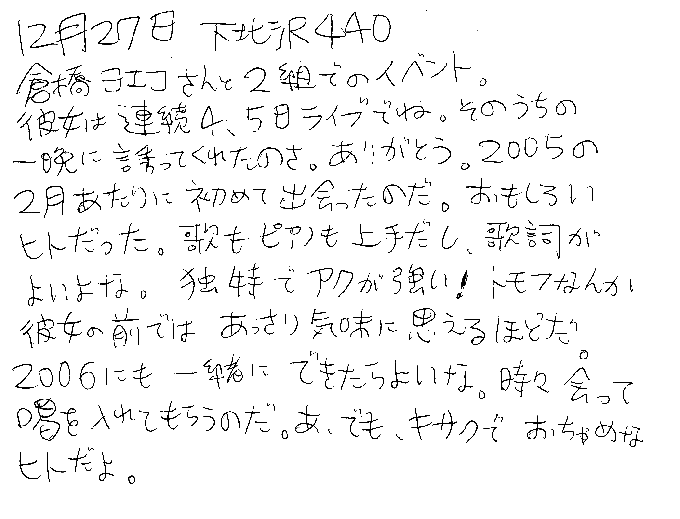 12月27日 下北沢440
倉橋ヨエコさんと2組でのイベント。
彼女は連続4、5日ライブでね。そのうちの
一晩に誘ってくれたのさ。ありがとう。2005の
2月あたりに初めて出会ったのだ。おもしろい
ヒトだった。歌もピアノも上手だし、歌詞が
よいよな。独特でアクが強い!トモフなんか
彼女の前では あっさり気味に思えるほどだ。
2006にも一緒にできたらよいな。時々会って
喝を入れてもらうのだ。あ、でも、キサクでおちゃめな
ヒトだよ。